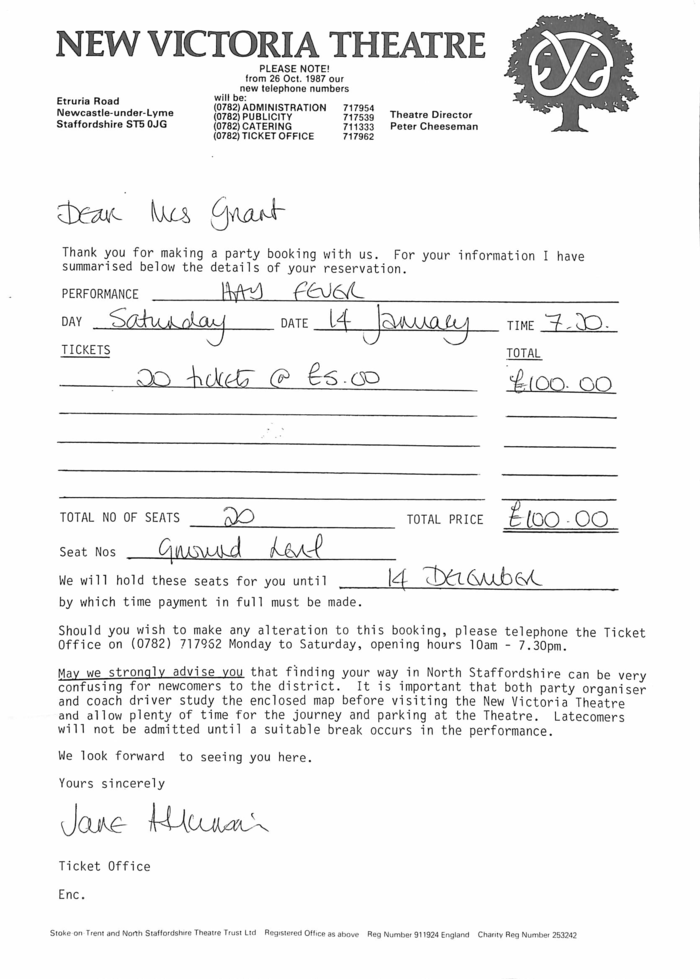 NEW VICTORIA THEATRE
PLEASE NOTE!
from 26 Oct. 1987 our
new telephone numbers
will be:
(0782) ADMINISTRATION 717954
(0782) PUBLICITY 717539
(0782) CATERING 711333
(0782) TICKET OFFICE 717962
Etruria Road
Newcastle-under-Lyme
Staffordshire ST5 0JG
Theatre Director
Peter Cheeseman
Dear Mrs Grant
Thank you for making a party booking with us. For your information I have
summarised below the details of your reservation.
PERFORMANCE HAY FEVER
DAY Saturday DATE 14 January TIME 7.30.
TICKETS TOTAL
20 tickets @ £5.00 £100.00
TOTAL NO OF SEATS 20 TOTAL PRICE £100.00
Seat Nos Ground Level
We will hold these seats for you until 14 DECEMBER
by which time payment in full must be made.
Should you wish to make any alteration to this booking, please telephone the Ticket
Office on (0782) 717962 Monday to Saturday, opening hours 10am - 7.30pm.
May we strongly advise you that finding your way in North Staffordshire can be very
confusing for newcomers to the district. It is important that both party organiser
and coach driver study the enclosed map before visiting the New Victoria Theatre
and allow plenty of time for the journey and parking at the Theatre. Latecomers
will not be admitted until a suitable break occurs in the performance.
We look forward to seeing you here.
Yours sincerely
Jane
Ticket Office
Enc.
Stoke-on-Trent and North Staffordshire Theatre Trust Ltd Registered Office as above Reg Number 911924 England Charity Reg Number 253242